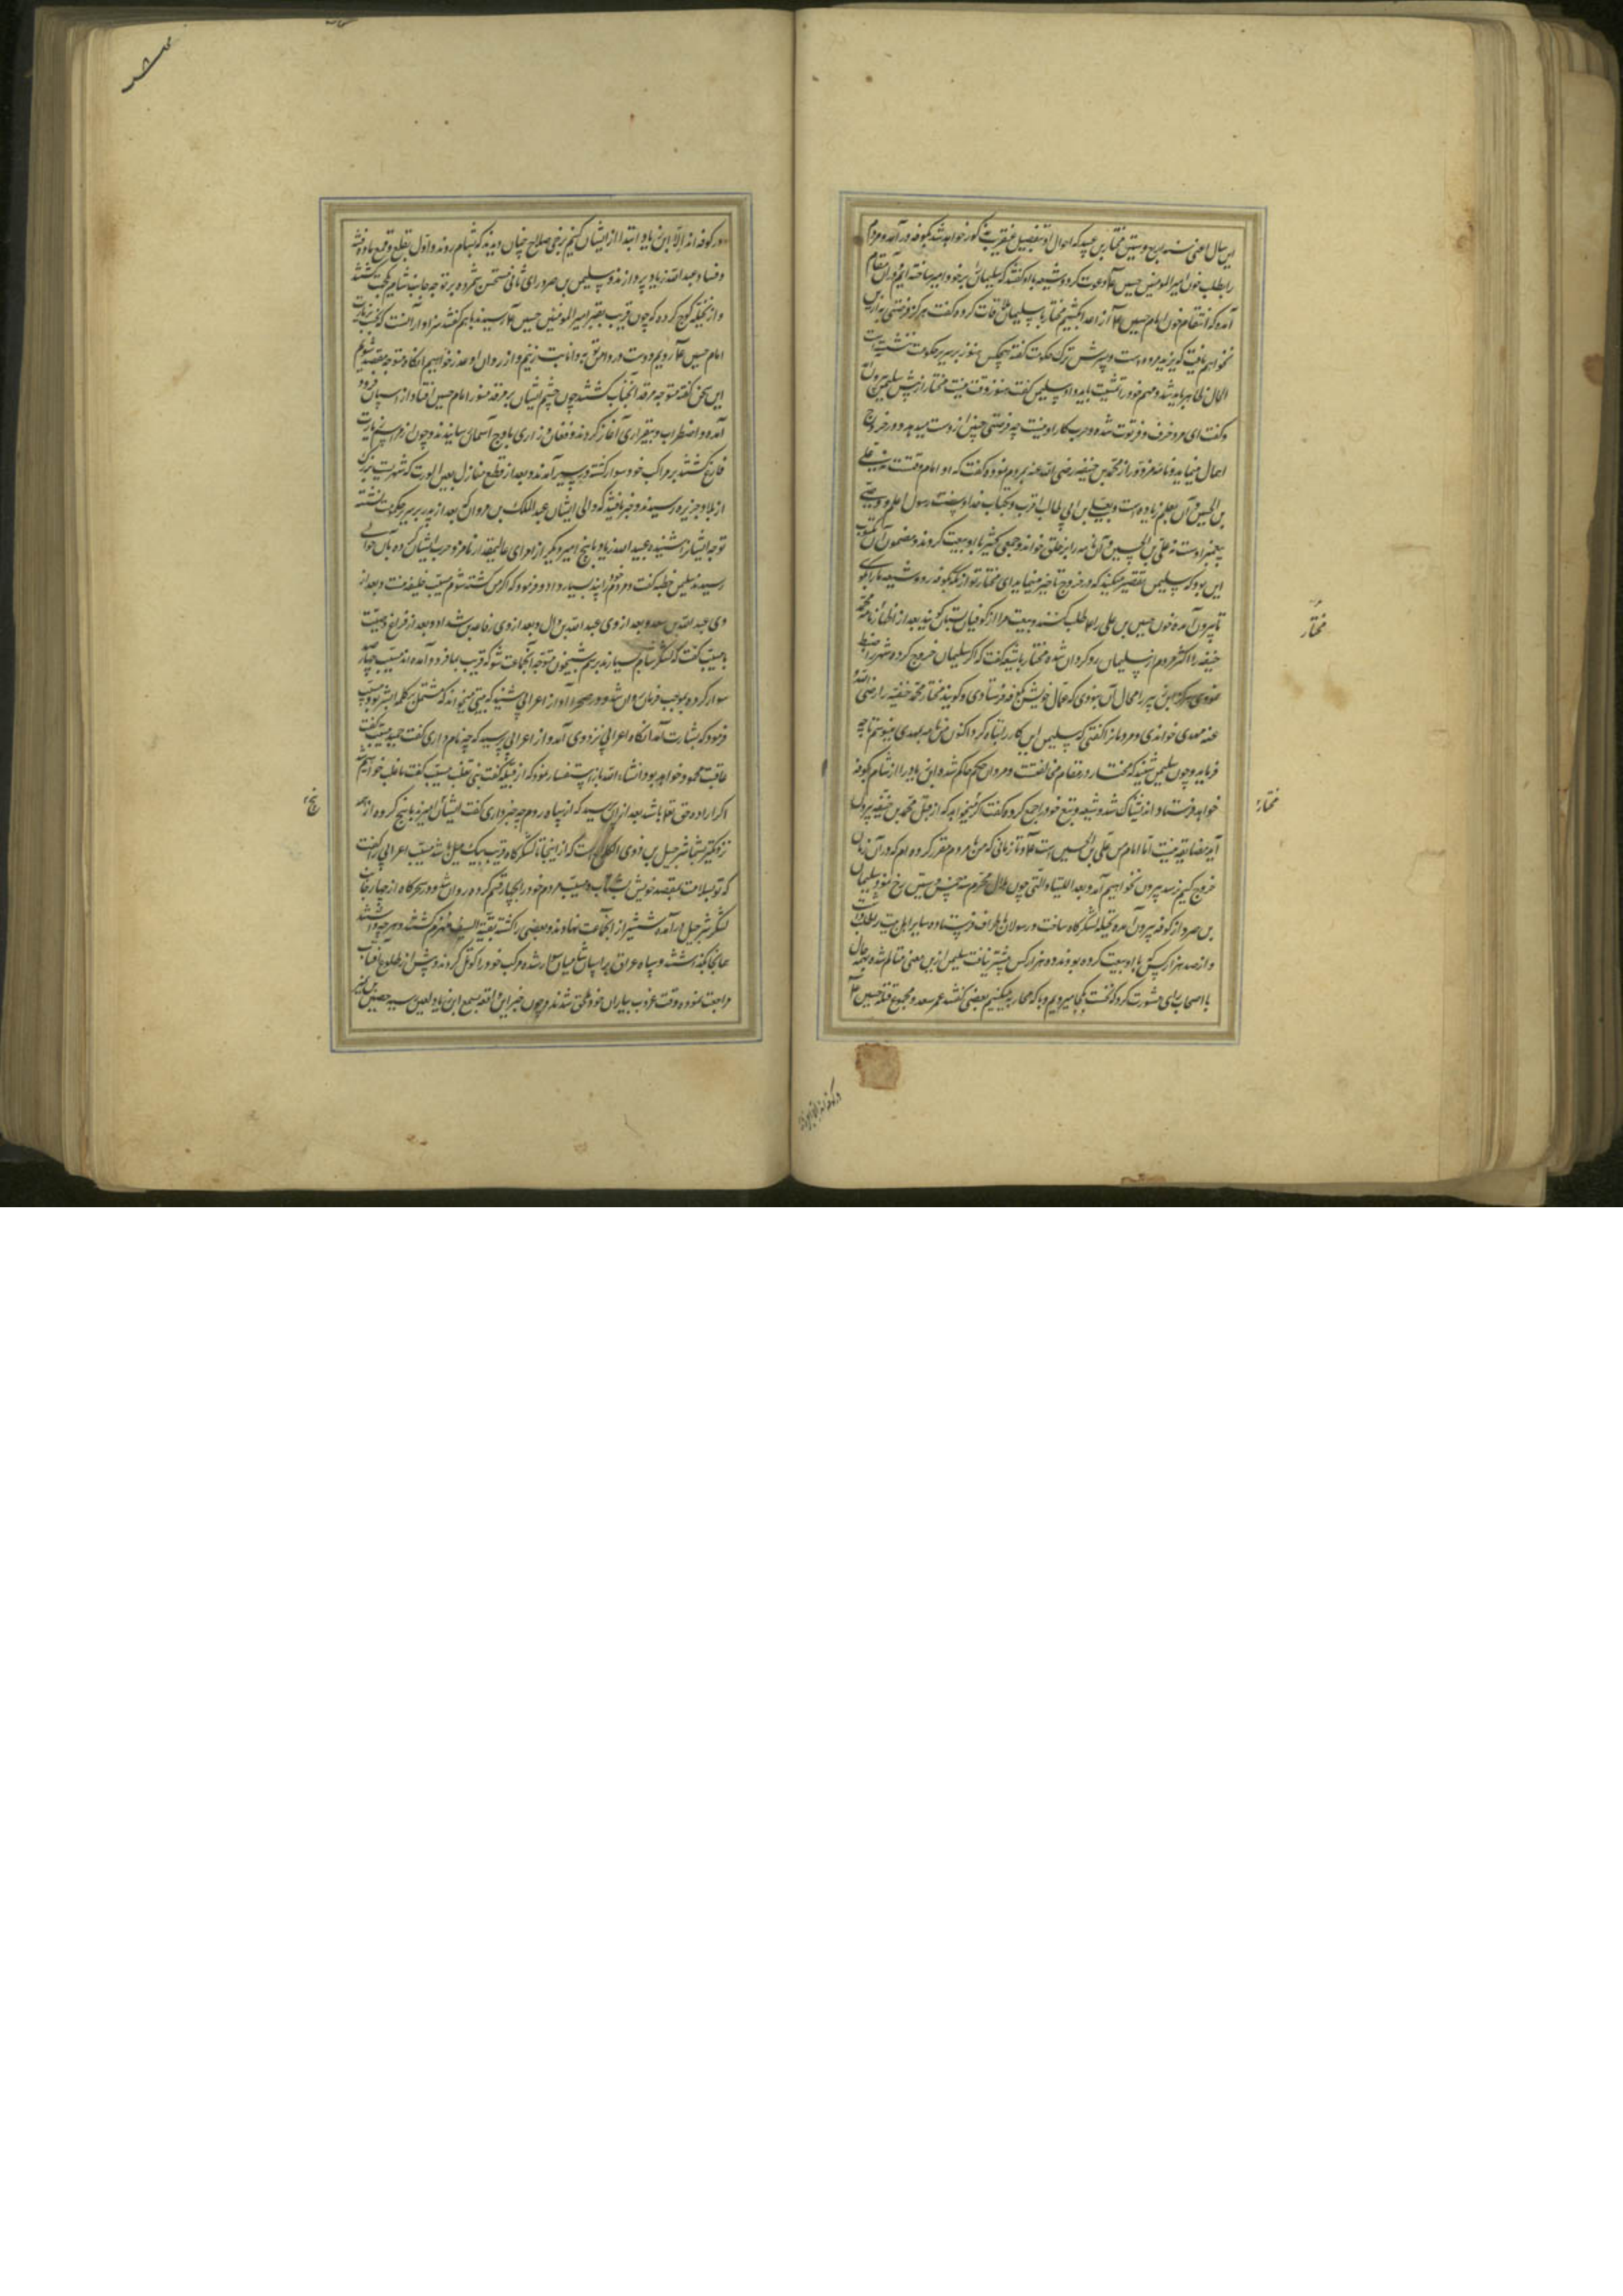 این سال اعنی سنه اربع و ستین مختار بن عبید که احوال او بتفصیل عنقریب مذکور خواهد شد بکوفه درآمد و مردم
را بطلب خون امیر المومنین حسین ع دعوت کرد و شیعه باو گفتند که سلیمان را بر خود امیر ساخته ایم و در آن مقام
آمده که انتقام خون امام حسین ع از اعدا بکشیم مختار با سلیمان ملاقات کرده گفت هرگز فرصتی به ازین
نخواهیم یافت که یزید مرده است و پسرش ترک حکومت گفته هیچکس هنوز بر سریر حکومت ننشسته است
الحال ظاهر باید شد و مهم خود را تمشیت باید داد سلیمن گفت هنوز وقت نیست مختار از پیش سلیمن بیرون
و گفت ای مرد خرف و فرتوت شده و حرب کار او نیست چه فرصتی چنین از دست میدهد و در خروج
اهمال مینماید و نامه مزور از محمد بن حنیفه رضی الله عنه بمردم نمود و گفت که او امام وقتست نه علی
بن الحسین و آن بعلم زیاده است و بعلی بن ابی طالب اقرب و بکتاب خدا و سنت رسول اعلم و وصی
پیغمبر اوست نه علی بن الحسین و آن نامه را بر خلق خواند و جمعی کثیر با او بیعت کردند و مضمون آن مکتوب
این بود که سلیمن تقصیر میکند که در خروج تاخیر مینماید ای مختار تو از مکه بکوفه رو و شیعه ما را بگوی
تا بیرون آمده خون حسین بن علی را ع طلب کنند و بیعت مرا از کوفیان بستان گویند بعد از اظهار نامه محمد
حنیفه اکثر مردم از سلیمان رو گردان شده مختار با شیعه گفت که اگر سلیمان خروج کرده شهر را ضبط
نمودی هرگز ابن زبیر را مجال آن نبودی که عمال خویش بکوفه فرستادی و گویند مختار محمد حنفیه را رضی الله
عنه مهدی خواندی و مردمان را گفتی که سلیمن این کار را تباه کرد اکنون من نامه بمهدی مینویسم تا چه
فرماید و چون سلیمن شنید که مختار در مقام مخالفتست و مروان حکم حاکم شد و ابن زیاد را از شام بکوفه
خواهد فرستاد اندیشناک شد و شیعه و تبع خود را جمع کرده گفت اگر میخواهید که از قبل محمد بن حنیفه بیرون
آیید مضایقه نیست اما امام من علی بن الحسین است ع و تا زمانی که من با مردم مقرر کرده ام که در آن زمان
خروج کنیم نرسد بیرون نخواهیم آمد و بعد اللتیا و التی چون هلال محرم سنه خمس و ستین رخ نمود سلیمان
بن صرد از کوفه بیرون آمده نخیله لشکرگاه ساخت و رسولان باطراف فرستاده سایر اهل بیعت را طلب داشت
و از صد هزار کس که با او بیعت کرده بودند ده هزار کس بیشتر نیافت سلیمن ازین معنی متالم شده بهر حال
با اصحاب رای مشورت کرد که نخست بکجا میرویم و با که محاربه میکنیم بعضی گفتند عمر سعد و مجموع قتله حسین ع
مختار
مختار
در کوفه اند الا ابن زیاد
در کوفه اند الا ابن زیاد ابتدا از ایشان کنیم برخی صلاح چنان دیدند که بشام روند و اول بقلع و قمع ماده فتنه
و فساد عبدالله زیاد پردازند و سلیمن بن صرد رای ثانی مستحسن شمرده بر توجه جانب شام یکجهت گشتند
و از نخیله کوچ کرده که چون قریب بقبر امیر المومنین حسین ع رسیدند با هم گفتند سزاوار آنست که نخست بزیارت
امام حسین ع رویم و دست در دامن توبه و انابت زنیم و از روان او عذر خواهیم آنگاه متوجه مقصد شویم
این سخن گفته متوجه مرقد آنجناب گشتند چون چشم ایشان بر مرقد منور امام حسین افتاد از اسپان فرود
آمده و اضطراب و بیقراری آغاز کردند و فغان و زاری باوج آسمان رسانیدند و چون از مراسم زیارت
فارغ گشتند بر مراکب خود سوار گشته در سیر آمدند و بعد از قطع منازل بعین الورد که شهریست بزرگ
از بلاد جزیره رسیدند و خبر یافتند که والی ایشان عبدالملک بن مروان که بعد از پدر بر سریر حکومت نشسته
توجه ایشان شنیده عبیدالله زیاد با پنج امیر دیگر از امرای عالیمقدار نامزد حرب ایشان کرده بآن حوالی
رسیدند سلیمن خطبه گفت و مردم را پند بسیار داد و فرمود که اگر من کشته شوم مسیب خلیفه منست و بعد از
وی عبدالله بن سعد و بعد از وی عبدالله بن وال و بعد از وی رفاعه بن شداد و بعد از فراغ وصیت
با مسیب گفت که لشکر شام بسیارند برسم شبیخون متوجه آنجماعت شو که قریب بما فرود آمده اند مسیب چهارصد
سوار کرده بموجب فرمان روان شد و در صحرا آواز اعرابی شنید که بیتی میخواند که مشتمل بر کلمه ابشر بود مسیب
فرمود که بشارت آمد آنگاه اعرابی نزد وی آمد و از اعرابی پرسید که چه نام داری گفت حمید مسیب گفت
عاقبت محمود خواهد بود انشاء الله باز استفسار نمود که از کدام قبیله گفت بنی تغلب مسیب گفت ما غالب خواهیم شد
اگر اراده حق تع باشد بعد ازان پرسید که از سپاه روم چه خبر داری گفت ایشان امیرند با پنج گروه از همه
نزدیکتر بشما شرحبیل بن ذوی الکلاع است که از اینجا تا لشکرگاه او قریب بیک میل باشد مسیب اعرابی را گفت
که تو بسلامت بمقصد خویش بشتاب و مسیب مردم خود را بچهار قسم کرده روان شد و در سحرگاه از چهار جانب
لشکر شرحبیل درآمده شمشیر از آنجماعت نهادند و بعضی را کشته بقیة السیف منهزم گشتند و هر چه داشتند
همانجا بگذاشتند و سپاه عراق بر اسپان شامیان سوار شده مرکب خود را کوتل کردند و پیش از طلوع آفتاب
مراجعت نموده وقت غروب بیاران خود ملحق شدند و چون خبر این واقعه بسمع ابن زیاد لعین رسید حصین بن نمیر
پنج